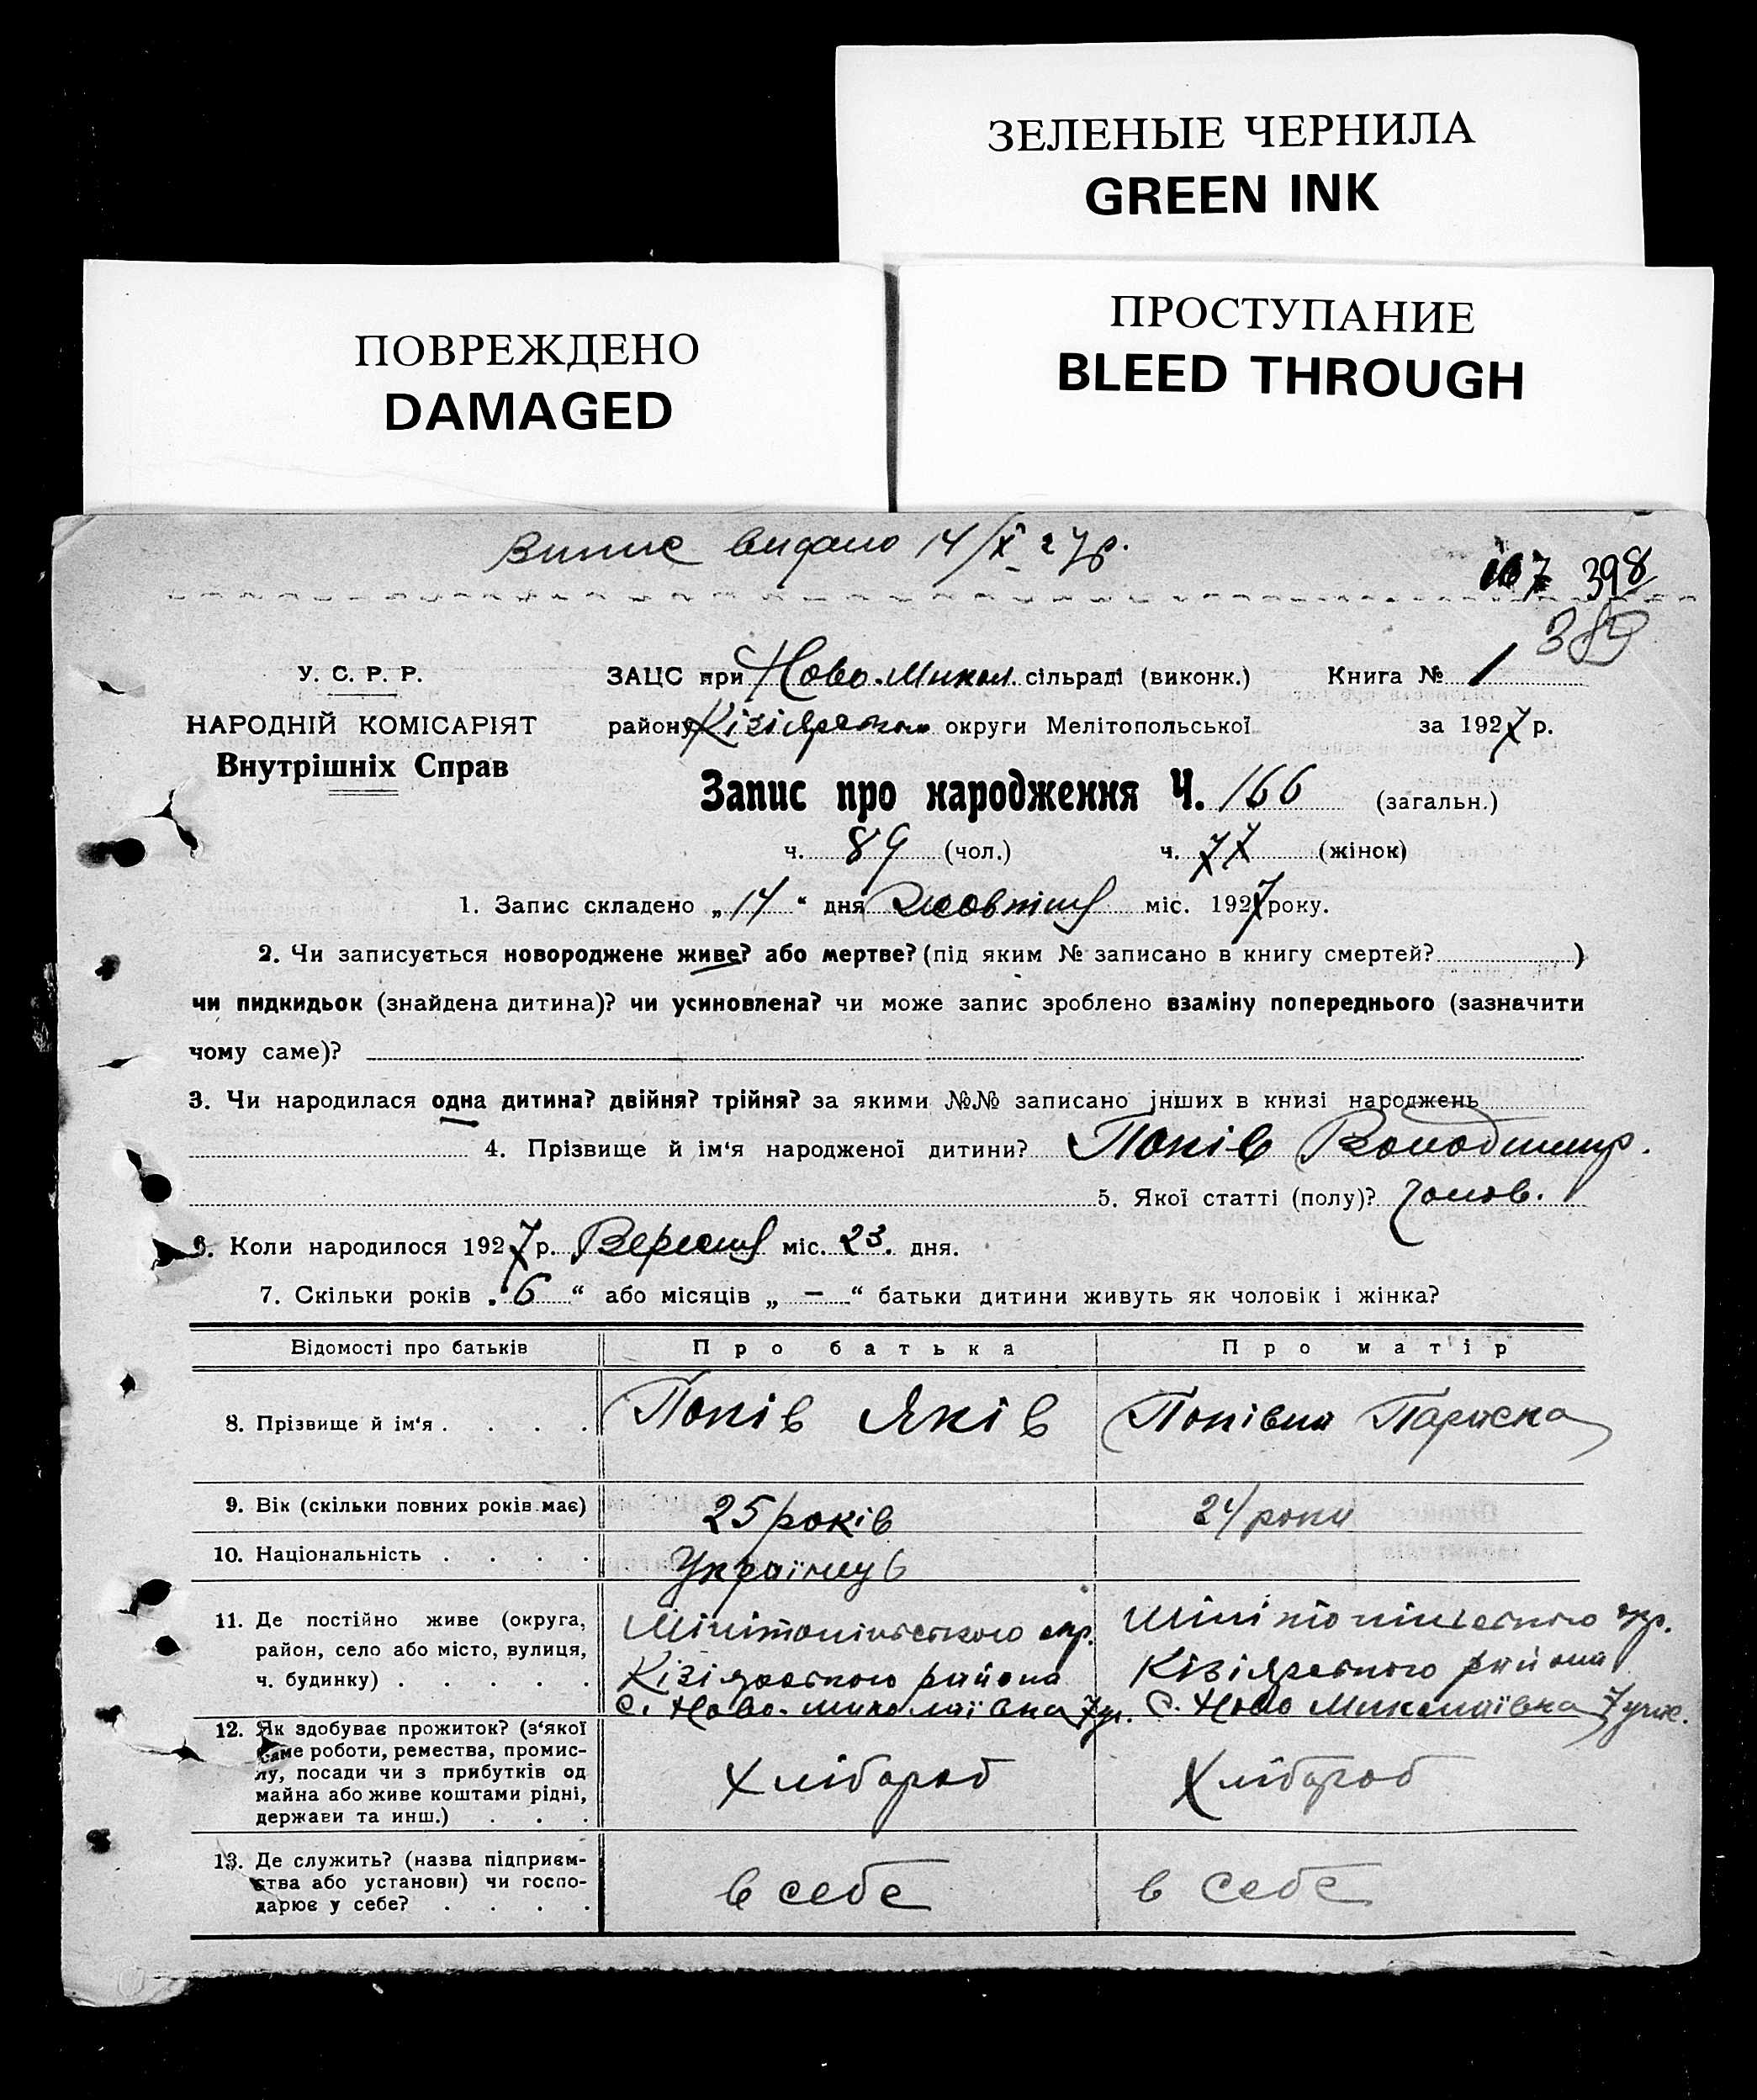 ЗЕЛЕНЫЕ ЧЕРНИЛА
GREEN INK
ПОВРЕЖДЕНО
DAMAGED
ПРОСТУПАНИЕ
BLEED THROUGH
Випис видано 14/X 27р.
167 398
У. С. Р. Р.
НАРОДНІЙ КОМІСАРІЯТ
Внутрішніх Справ
ЗАЦС при Ново-Микол. сільраді (виконк.) Книга № 1
району округи Мелітопольської за 1927 р.
Запис про народження Ч. 166 (загальн.)
ч. 89 (чол.) ч. 77 (жінок)
1. Запис складено „14“ дня Жовтня міс. 1927 року.
2. Чи записується новороджене живе? або мертве? (під яким № записано в книгу смертей? )
чи пидкидьок (знайдена дитина)? чи усиновлена? чи може запис зроблено взаміну попереднього (зазначити
чому саме)?
3. Чи народилася одна дитина? двійня? трійня? за якими №№ записано јнших в книзі народжень
4. Прізвище й ім‘я народженої дитини? Попів Володимир.
5. Якої статті (полу)? чолов.
6. Коли народилося 1927 р. Вересня міс. 23. дня.
7. Скільки років „6“ або місяців „ — “ батьки дитини живуть як чоловік і жінка?
Відомості про батьків Про батька Про матір
8. Прізвище й ім‘я . . . . Попів Яків Попівна Параска
9. Вік (скільки повних років має) 25 років 24 роки
10. Національність . . . . Українців
11. Де постійно живе (округа,
район, село або місто, вулиця,
ч. будинку) . . . . .
Мілітопільського окр. Мілітопільського окр.
Кізіярського района Кізіярського района
с. Ново-Миколаївка с. Ново Миколаївка
12. Як здобуває прожиток? (з‘якої
саме роботи, ремества, промис-
лу, посади чи з прибутків од
майна або живе коштами рідні,
держави та инш.) . . .
Хлібороб Хлібороб
13. Де служить? (назва підприєм-
ства або установи) чи госпо-
дарює у себе? . . . .
в себе в себе